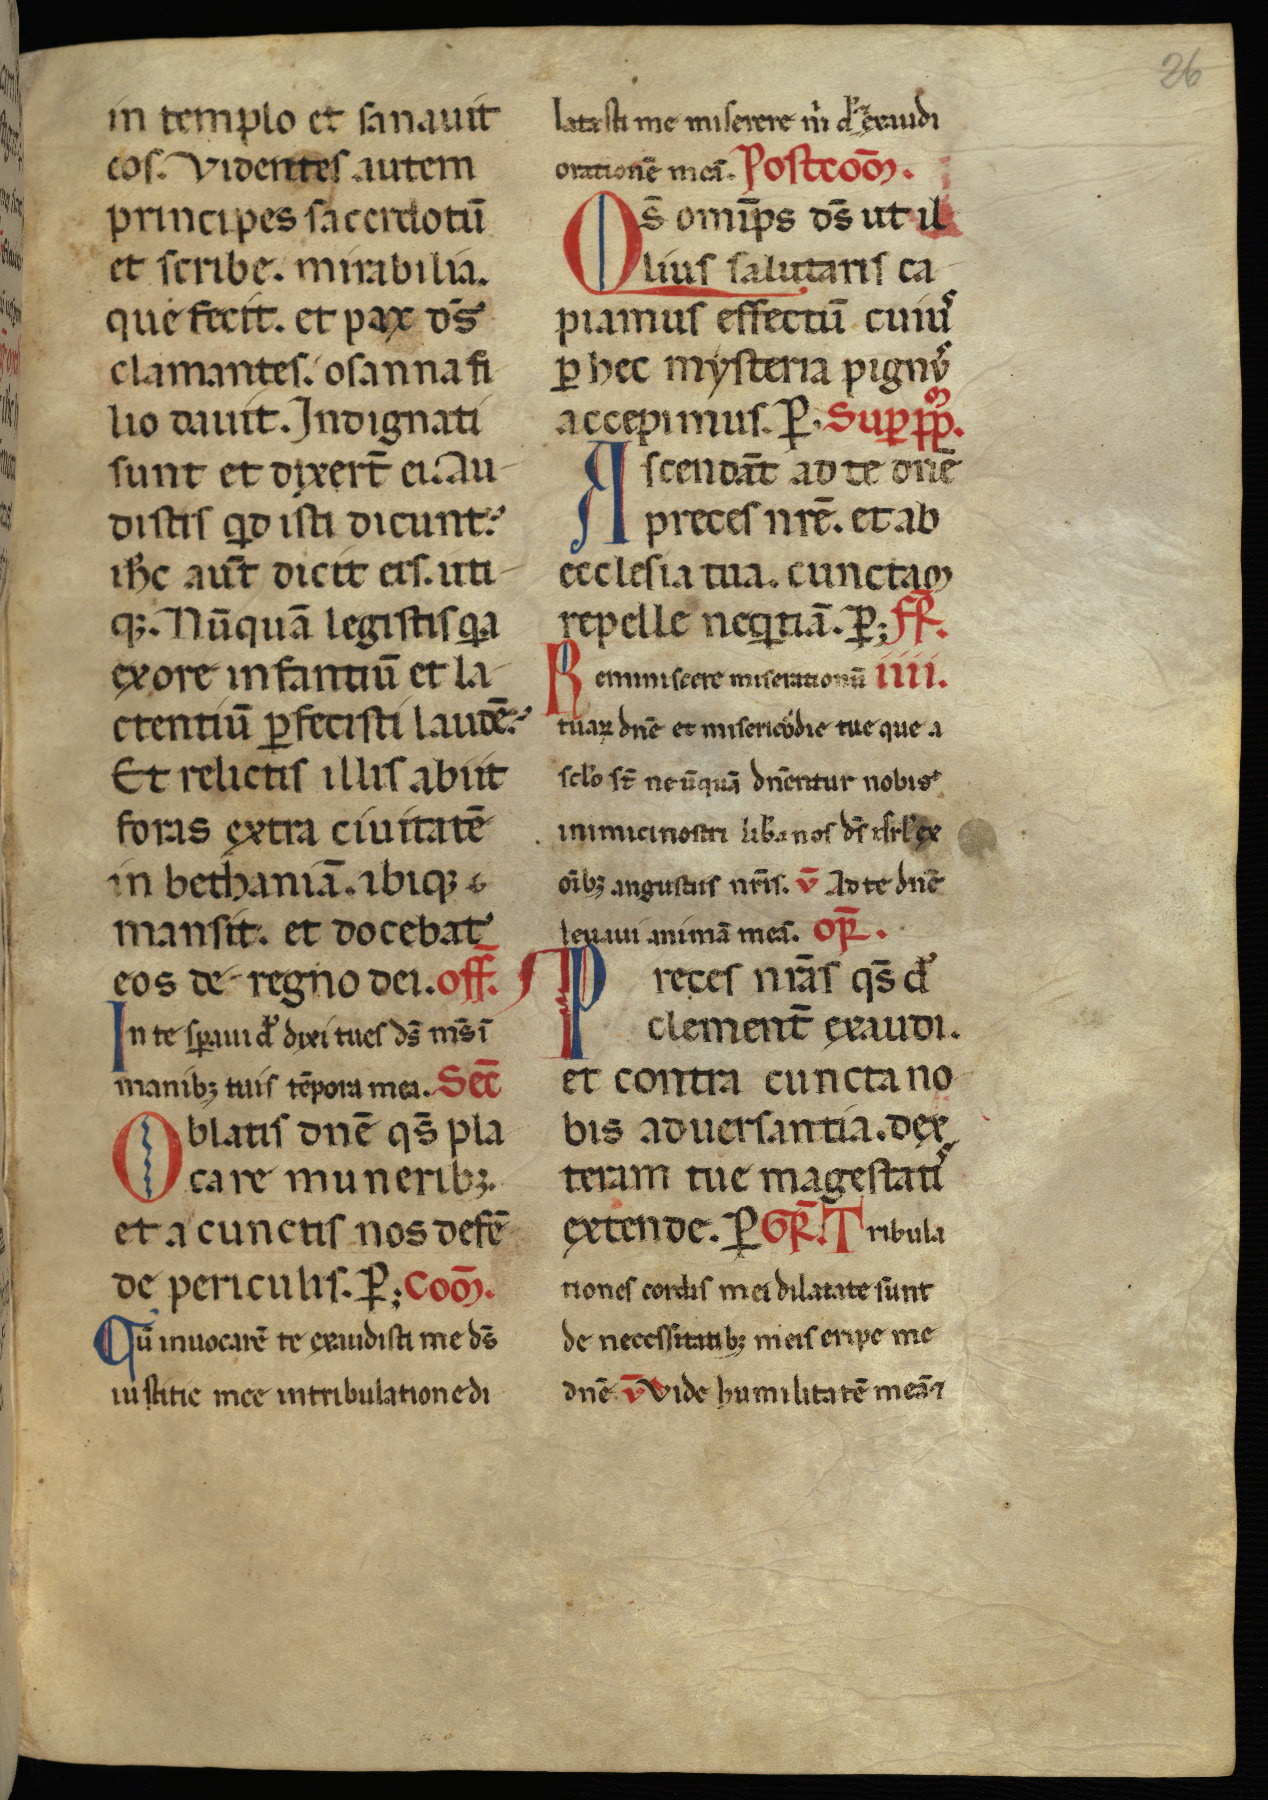 26
in templo et sanauit
eos. Videntes autem
principes sacerdotū
et scribe. mirabilia.
que fecit. et pax dn̄s
clamantes. osanna fi
lio dauit. Indignati
sunt et dixert̄ ei. Au
distis qd isti dicunt?
ihc aut̄ dicit eis. uti
q;. Nūquā legistis qa
ex ore infantiū et la
ctentiū ꝑfecisti laudē?
Et relictis illis abiit
foras extra ciuitatē
in bethaniā. ibiq;
mansit. et docebat
eos de regno dei. off̄.
In te sꝑaui dn̄e dixi tu es ds̄ ms̄ ī
manib; tuis tēpora mea. Sec̄
Oblatis dnē qs̄ pla
care munerib;.
et a cunctis nos defē
de periculis. P̱; Coō.
Cū inuocarē te exaudisti me ds̄
iustitie mee in tribulatione di
latasti me miserere m̄ dn̄e ⁊ exaudi
orationē meā. Postcoō.
Os̄ omīps ds̄ ut il
lius salutaris ca
piamus effectū cuiꝰ
ꝑ hec mysteria pignꝰ
accepimus. P̱. Sup ppm̄.
Ascendāt ad te dnē
preces nrē. et ab
ecclesia tua. cunctam
repelle neqtiā. P̱; Fr̄.
Reminiscere miserationū iiii.
tuaꝝ dnē et misericordie tue que a
sclo st̄ ne ūquā dn̄entur nobis
inimici nostri liba nos ds̄ isrl̄ ex
oīb; angustiis nrīs. V̄ Ad te dnē
leuaui animā meā. Or̄.
Preces nrās qs̄ dn̄e
clement̄ exaudi.
et contra cuncta no
bis aduersantia. dex
teram tue magestatis
extende. P̱ Gr̄. Tribula
tiones cordis mei dilatate sūnt
de necessitatib; meis eripe me
dnē V̄ Vide humilitatē meā ⁊